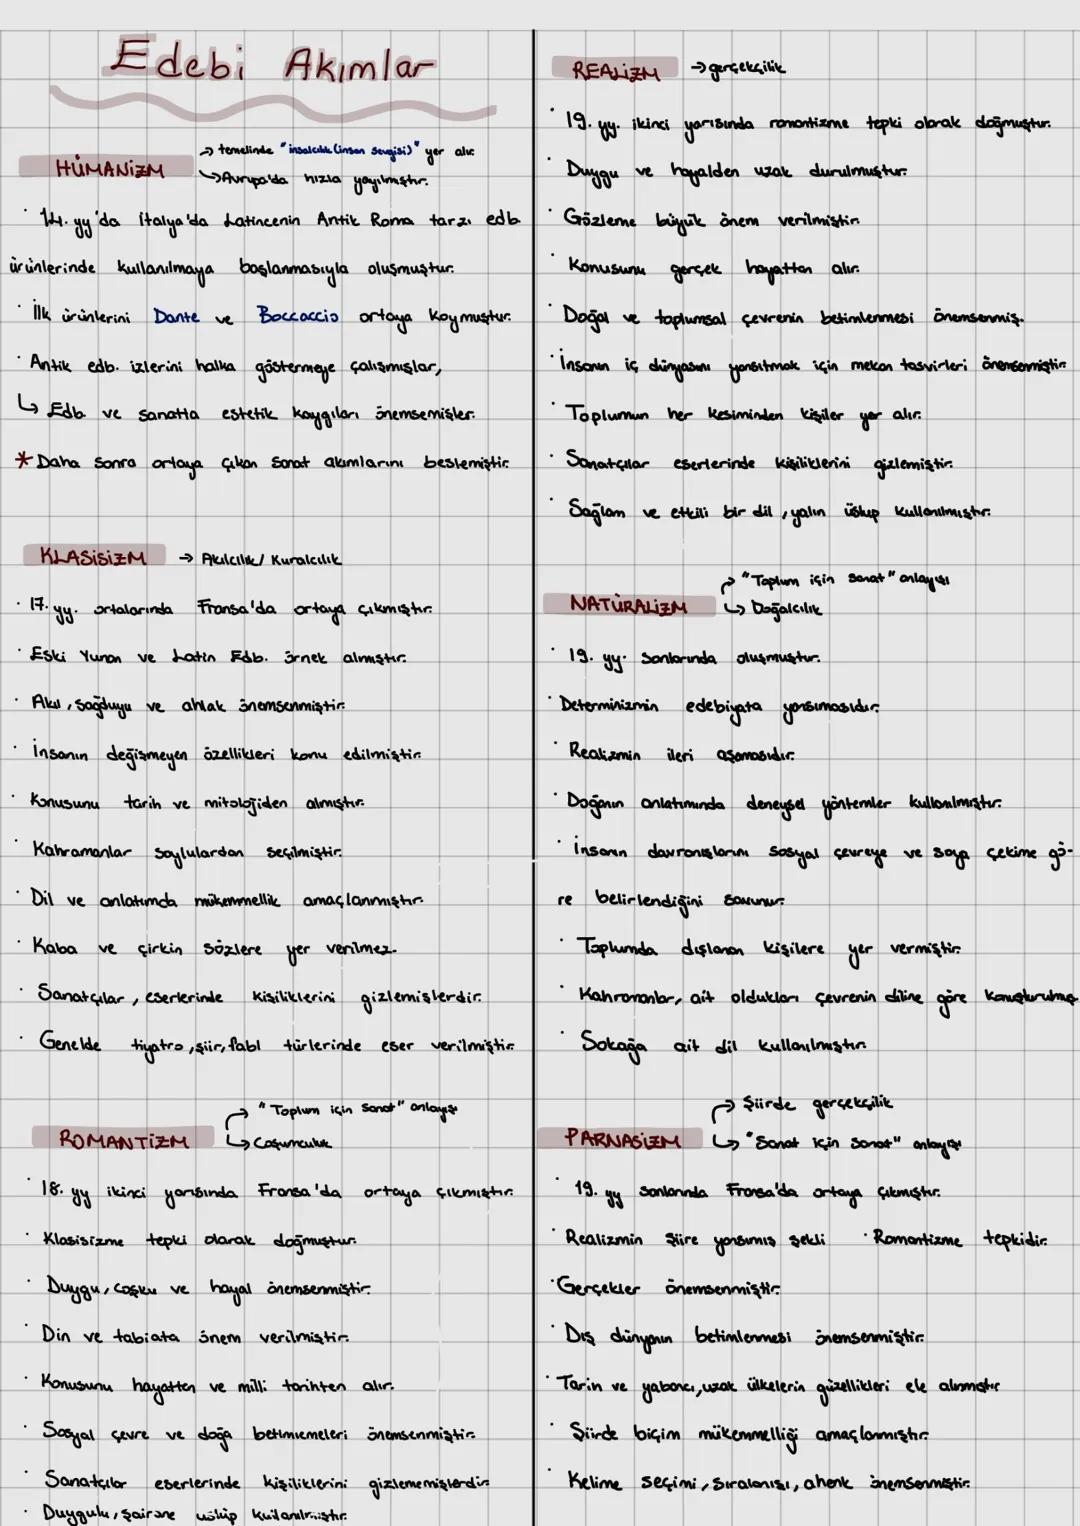 Edebi Akımlar
HÜMANİZM
→ temelinde "insalcılık (insan sevgisi)" yer alır.
↳ Avrupa'da hızla yayılmıştır.
· 14. yy'da İtalya'da Latincenin Antik Roma tarzı edb.
ürünlerinde kullanılmaya başlanmasıyla oluşmuştur.
· İlk ürünlerini Dante ve Boccaccio ortaya koymuştur.
· Antik edb. izlerini halka göstermeye çalışmışlar,
↳ Edb. ve sanatta estetik kaygıları önemsemişler.
* Daha sonra ortaya çıkan sanat akımlarını beslemiştir.
KLASİSİZM → Akılcılık / Kuralcılık
· 17. yy. ortalarında Fransa'da ortaya çıkmıştır.
· Eski Yunan ve Latin Edb. örnek almıştır.
· Akıl, sağduyu ve ahlak önemsenmiştir.
· İnsanın değişmeyen özellikleri konu edilmiştir.
· Konusunu tarih ve mitolojiden almıştır.
· Kahramanlar soylulardan seçilmiştir.
· Dil ve anlatımda mükemmellik amaçlanmıştır.
· Kaba ve çirkin sözlere yer verilmez.
· Sanatçılar, eserlerinde kişiliklerini gizlemişlerdir.
· Genelde tiyatro, şiir, fabl türlerinde eser verilmiştir.
ROMANTİZM
→ "Toplum için sanat" anlayışı
↳ Coşumculuk
· 18. yy ikinci yarısında Fransa'da ortaya çıkmıştır.
· Klasisizme tepki olarak doğmuştur.
· Duygu, coşku ve hayal önemsenmiştir.
· Din ve tabiata önem verilmiştir.
· Konusunu hayatten ve milli tarihten alır.
· Sosyal çevre ve doğa betimlemeleri önemsenmiştir.
· Sanatçılar eserlerinde kişiliklerini gizlememişlerdir.
· Duygulu, şairane üslup kullanılmıştır.
REALİZM → gerçekçilik
· 19. yy. ikinci yarısında romantizme tepki olarak doğmuştur.
· Duygu ve hayalden uzak durulmuştur.
· Gözleme büyük önem verilmiştir.
· Konusunu gerçek hayattan alır.
· Doğal ve toplumsal çevrenin betimlenmesi önemsenmiş.
· İnsanın iç dünyasını yansıtmak için mekan tasvirleri önemsenmiştir.
· Toplumun her kesiminden kişiler yer alır.
· Sanatçılar eserlerinde kişiliklerini gizlemiştir.
· Sağlam ve etkili bir dil, yalın üslup kullanılmıştır.
NATÜRALİZM
→ "Toplum için sanat" anlayışı
↳ Doğalcılık
· 19. yy. sonlarında oluşmuştur.
· Determinizmin edebiyata yansımasıdır.
· Realizmin ileri aşamasıdır.
· Doğanın anlatımında deneysel yöntemler kullanılmıştır.
· İnsanın davranışlarını sosyal çevreye ve soya çekime gö-
re belirlendiğini savunur.
· Toplumda dışlanan kişilere yer vermiştir.
· Kahramanlar, ait oldukları çevrenin diline göre konuşturulmuş
· Sokağa ait dil kullanılmıştır.
PARNASİZM
→ Şiirde gerçekçilik
↳ "Sanat için sanat" anlayışı
· 19. yy sonlarında Fransa'da ortaya çıkmıştır.
· Realizmin şiire yansımış şekli · Romantizme tepkidir.
· Gerçekler önemsenmiştir.
· Dış dünyanın betimlenmesi önemsenmiştir.
· Tarih ve yabancı, uzak ülkelerin güzellikleri ele alınmıştır
· Şiirde biçim mükemmelliği amaçlanmıştır.
· Kelime seçimi, sıralanışı, ahenk önemsenmiştir.